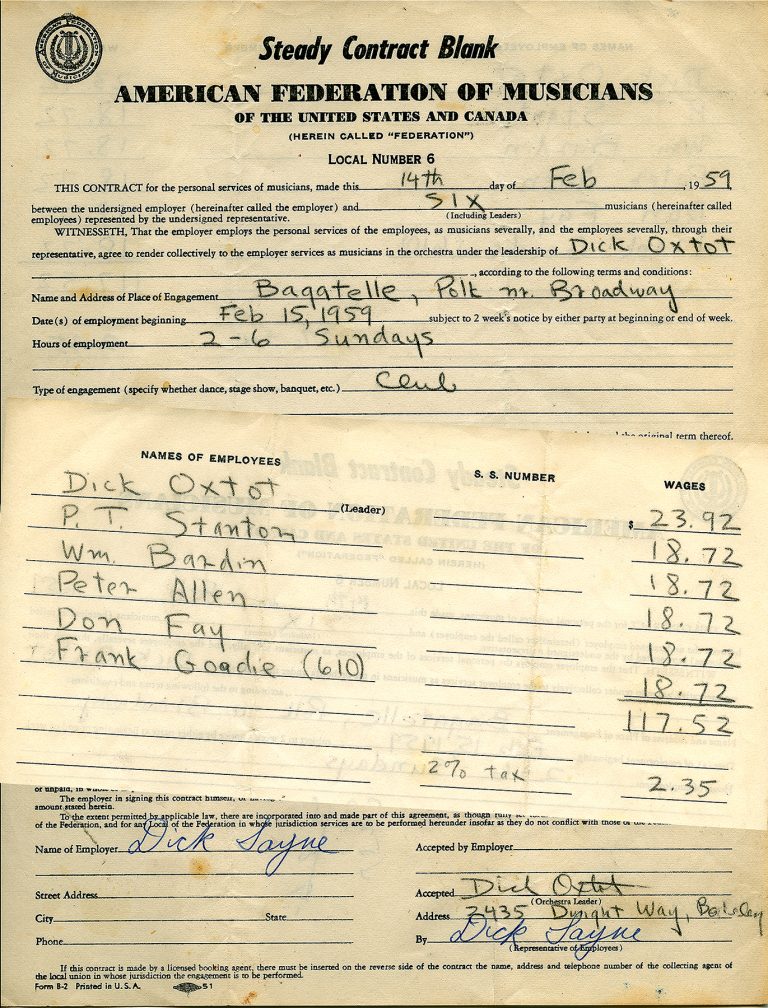 AMERICAN FEDERATION OF MUSICIANS
Steady Contract Blank
AMERICAN FEDERATION OF MUSICIANS
OF THE UNITED STATES AND CANADA
(HEREIN CALLED "FEDERATION")
LOCAL NUMBER 6
THIS CONTRACT for the personal services of musicians, made this 14th day of Feb, 1959
between the undersigned employer (hereinafter called the employer) and SIX musicians (hereinafter called
(Including Leaders)
employees) represented by the undersigned representative.
WITNESSETH, That the employer employs the personal services of the employees, as musicians severally, and the employees severally, through their
representative, agree to render collectively to the employer services as musicians in the orchestra under the leadership of Dick Oxtot
, according to the following terms and conditions:
Name and Address of Place of Engagement Bagatelle, Polk nr. Broadway
Date(s) of employment beginning Feb 15, 1959 subject to 2 week's notice by either party at beginning or end of week.
Hours of employment 2-6 Sundays
Type of engagement (specify whether dance, stage show, banquet, etc.) Club
original term thereof.
NAMES OF EMPLOYEES S. S. NUMBER WAGES
Dick Oxtot (Leader) $ 23.92
P. T. Stanton 18.72
Wm. Bardin 18.72
Peter Allen 18.72
Don Fay 18.72
Frank Goadie (610) 18.72
117.52
2% tax 2.35
or unpaid, in whole or
The employer in signing this contract himself, or having
amount stated herein.
To the extent permitted by applicable law, there are incorporated into and made part of this agreement, as though fully set
of the Federation, and for any Local of the Federation in whose jurisdiction services are to be performed hereunder insofar as they do not conflict with those of the
Name of Employer Dick Sayne Accepted by Employer
Street Address Accepted Dick Oxtot
(Orchestra Leader)
City State Address 2435 Dwight Way,
Phone By Dick Sayne
(Representative of Employees)
If this contract is made by a licensed booking agent, there must be inserted on the reverse side of the contract the name, address and telephone number of the collecting agent of
the local union in whose jurisdiction the engagement is to be performed.
Form B-2 Printed in U. S. A. 51